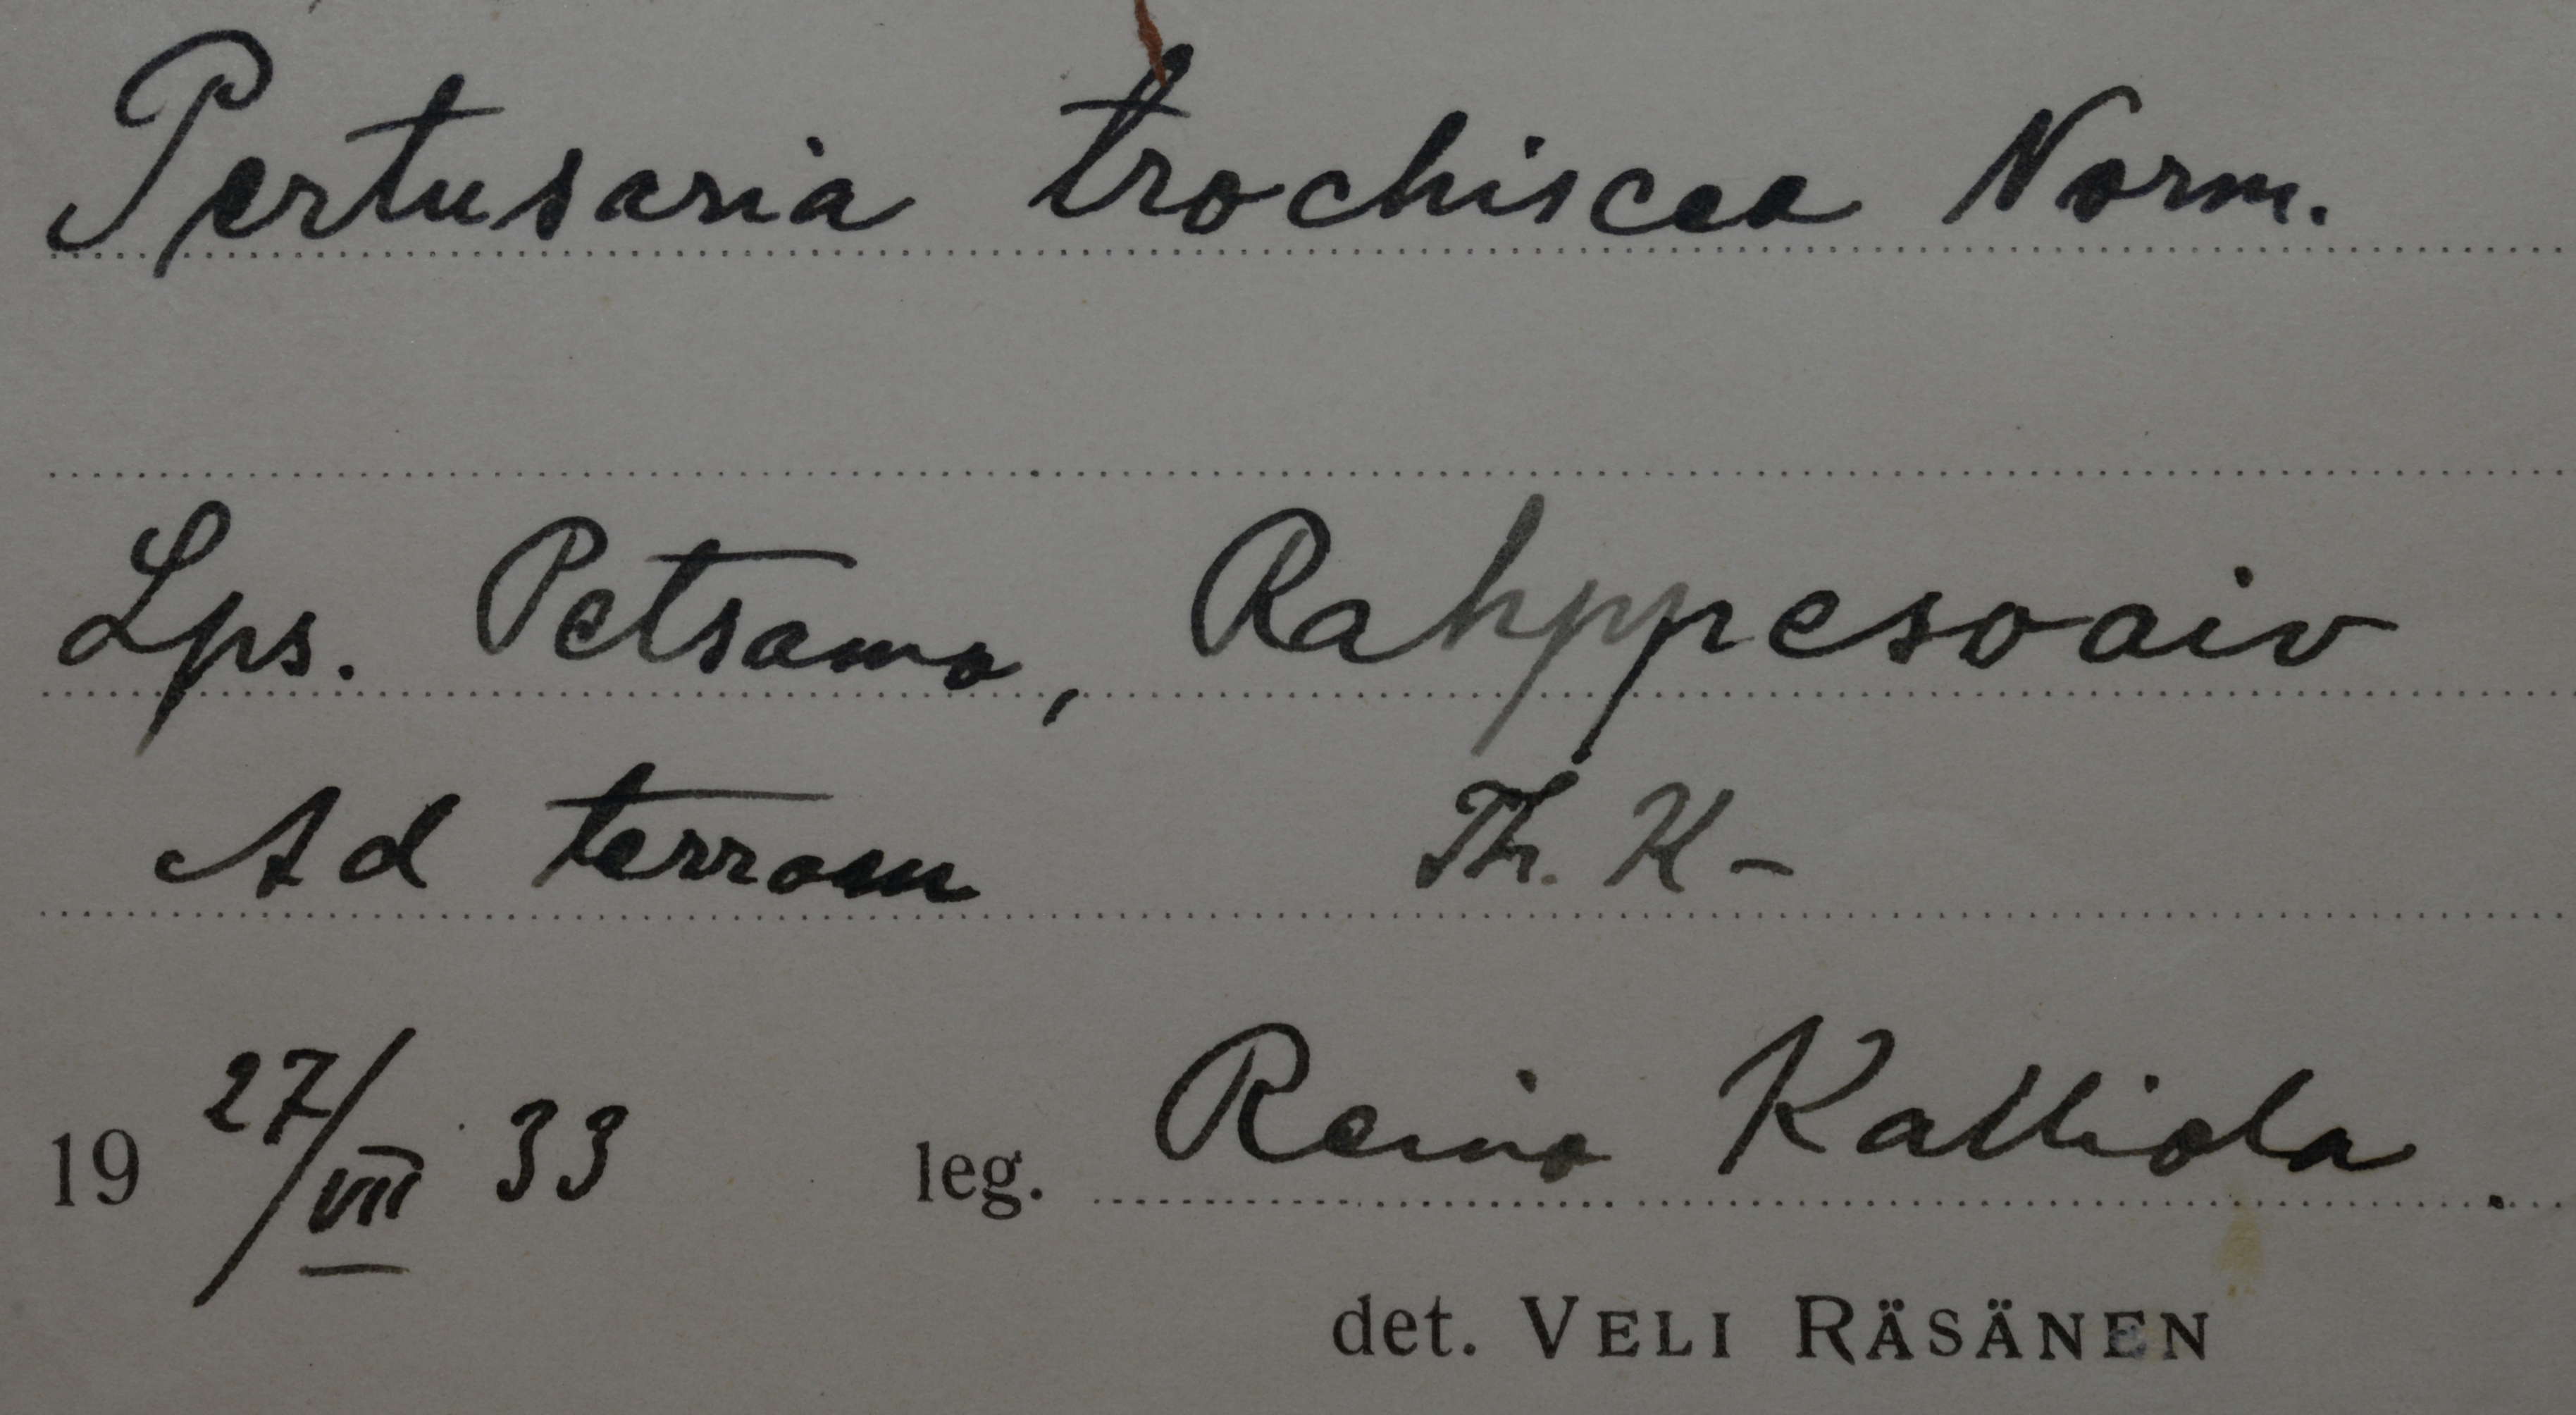 Pertusaria trochiscea Norm.
Lps. Petsamo, Rahppesoaiv
Ad terram Th. K-
19 27/VIII 33 leg. Reino Kalliola.
det. VELI RÄSÄNEN